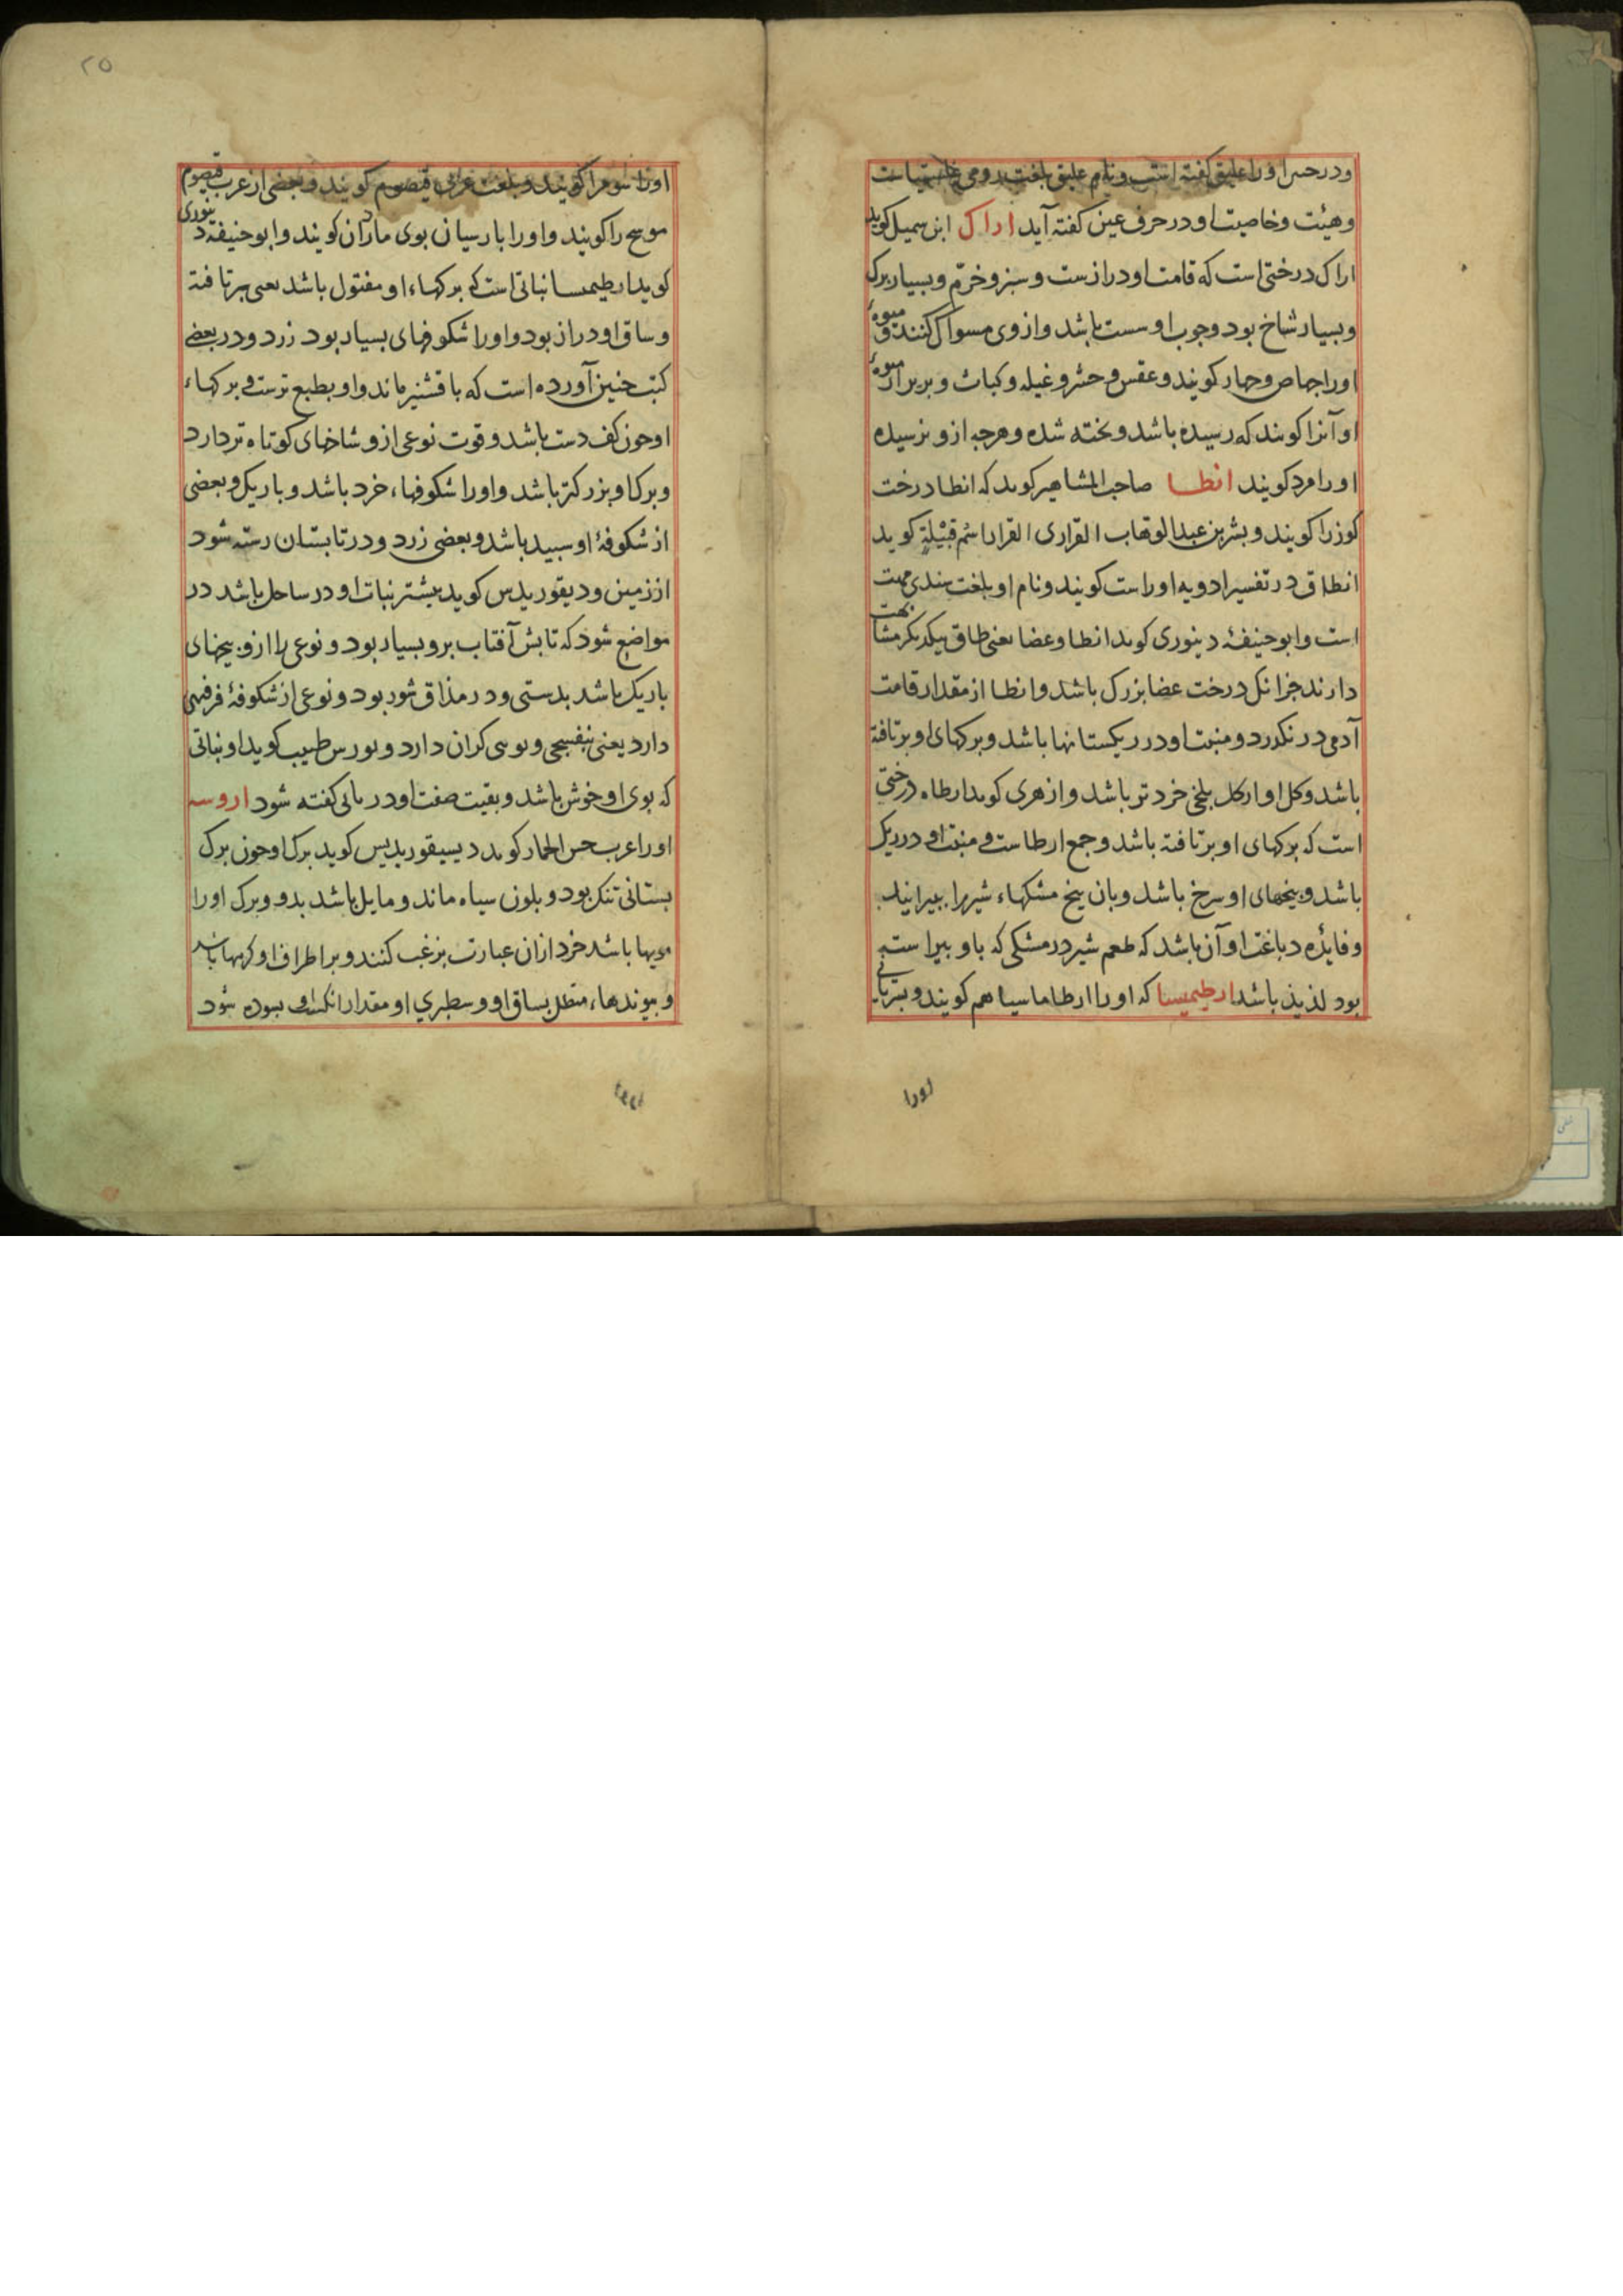 ودر حس اورا علیق گفته است ونام علیق بلغت رومی
وهیئت وخاصیت او در حرف عین کفته آید اراک ابن سمیل کوید
اراک درختی است که قامت او درازست وسبز وخرّم وبسیار برک
وبسیار شاخ بود وجوب او سست باشد وازوی مسواک کنند و میوهٔ
اورا جهاص وجهار کویند وعقس وحثر وغیله وکباث وبربر از میوهٔ
او آنرا کویند که رسیده باشد وبخته شده وهرجه ازو نرسیده
اورا مرد کویند انطا صاحب المشاهیر کوید که انطا درخت
کوزرا کویند وبشر بن عبد الوهاب القراری القرار اسم قبیلةٍ کوید
انطا ق در تفسیر ادویه اوراست کویند ونام او بلغت سندی مهت
است وابوحنیفهٔ دینوری کوید انطا وعضا یعنی طاق بیکدیکر مشابهت
دارند جز انک درخت عضا بزرک باشد وانطا از مقدار قامت
آدمی در نکذرد ومنبت او در ریکستانها باشد وبرکهای او برتافته
باشد وکل او ازکل بلخی خردتر باشد وازهری کوید ارطاه درختی
است که برکهای او برتافته باشد وجمع ارطاست ومنبت او در ریک
باشد وبیخهای او سرخ باشد وبان بیخ مشکهاء شیررا ببیرایند
وفایدهٔ دباغت او آن باشد که طعم شیر در مشکی که باو بیراسته
بود لذیذ باشد ارطیمیسا که اورا ارطاماسیا هم کویند وبسریانی
اورا
۲۵
اورا سو مرا کویند وبلغت عربی قیصوم کویند وبعضی از عرب قیصوم
موسح را کویند واورا بارسیان بوی مادران کویند وابوحنیفهٔ دینوری
کوید ارطیمسا نباتی است که برکهاء او مفتول باشد یعنی برتافته
وساق او دراز بود واورا شکوفهای بسیار بود زرد ودر بعضی
کتب جنین آورده است که باقشنیز ماند واو بطبع ترست وبرکهاء
اوجون کف دست باشد وقوت نوعی ازو شاخهای کوتاه تر دارد
وبرک او بزرکتر باشد واورا شکوفهاء خرد باشد وباریک وبعضی
از شکوفهٔ او سبید باشد وبعضی زرد ودر تابستان رسته شود
از زمین ودیقوریدس کوید بیشتر نبات او در ساحل باشد در
مواضع شود که تابش آفتاب برو بسیار بود ونوعی را ازو بیخهای
باریک باشد بدستی ودر مذاق شور بود ونوعی از شکوفهٔ فرفیری
دارد یعنی بنفسجی وبوی کران دارد وبورس طبیب کوید او نباتی
که بوی او خوش باشد وبقیت صفت او در بابی کفته شود اروسه
اورا عرب حس الحمار کوید دیسیقوریدیس کوید برک او جون برک
بستانی تنک بود وبلون سیاه ماند ومایل باشد بدو وبرک اورا
مویها باشد خرد ازان عبارت بزغب کنند وبر اطراف او کرهها باشد
وبیوندهاء متصل بساق او وسطبری او مقدار انکشت سوده شود
اورا